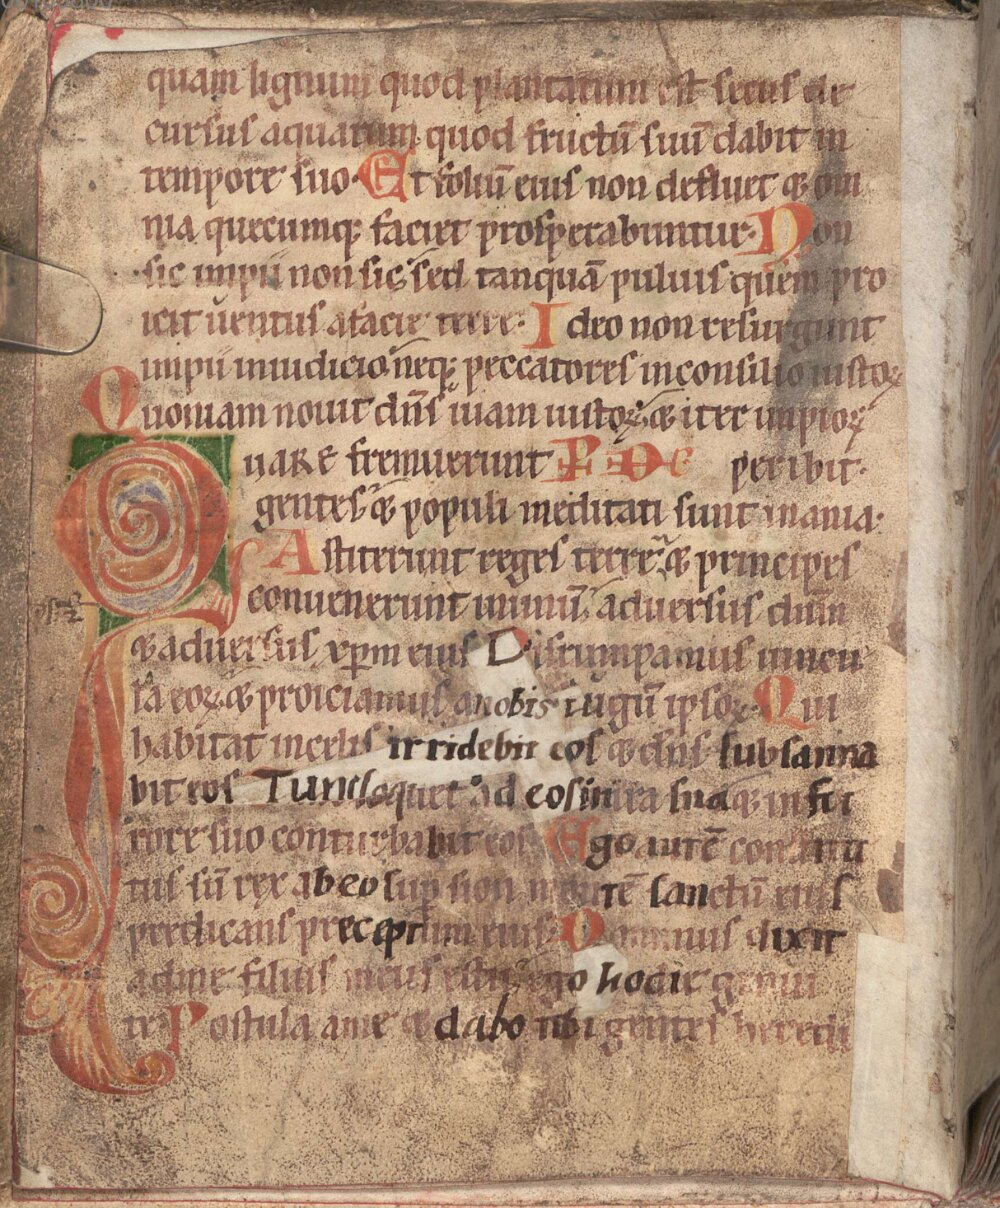 quam lignum quod plantatum est secus de
cursus aquarum quod fructū suū dabit in
tempore suo. Et foliū eius non defluet & om
nia quecumq; faciet prosperabuntur. Non
sic impii non sic, sed tanquā puluis quem pro
icit uentus a facie terre. Ideo non resurgunt
impii in iudicio neq; peccatores in consilio iustoꝝ
Quoniam nouit dn̄s uiam iustoꝝ & iter impioꝝ
peribit.
QUARE fremuerunt
gentes & populi meditati sunt inania.
Astiterunt reges terre & principes
conuenerunt in unū aduersus dn̄m
& aduersus xp̄m eius Disrumpamus uincu
la eoꝝ & proiciamus a nobis iugū ipsoꝝ Qui
habitat in celis irridebit eos & dn̄s subsanna
bit eos Tunc loquet ad eos in ira sua & in fu
rore suo conturbabit eos Ego autē constitu
tus sū rex ab eo sup sion montē sanctū eius
predicans preceptum eius Dominus dixit
ad me filius meus es tu ego hodie genui
te Postula a me & dabo tibi gentes heredi